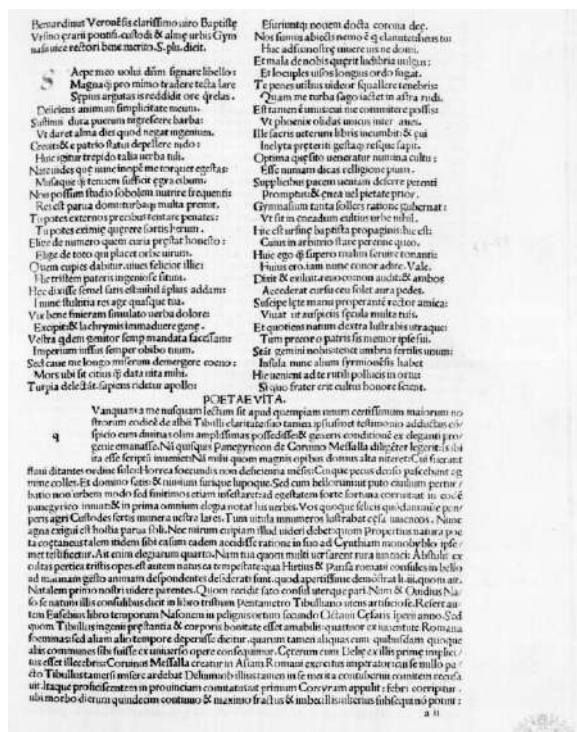 Bernardinus Veronēsis clarissimo uiro Baptistę
Vrsino ęrarii pontifi. custodi & almę urbis Gym
nasii uice rectori bene merito. S. plu. dicit.
S Aepe meo uolui dñm signare libello:
Magna q̃ pro mimo tradere tecta lare
Sępius argutas is reddidit ore q̃relas.
Deiiciens animum simplicitate meum.
Sustinui dura puerum nigrescere barba:
Vt daret alma dies quod negat ingenium.
Crescit & e patrio statui depellere nido:
Huic igitur trepido talia uerba tuli.
Naseides que nunc inopē me torquet egestas:
Musaque q̃ tenuem sufficit ęgra cibum.
Non possum studio sobolem nutrire frequenti:
Res est parua domi: turba q̃ multa premit.
Tu potes externos precibus tentare penates:
Tu potes eximio quęrere sortis herum.
Elige de numero quem curia pręstat honesto:
Elige de toto qui placet orbe uirum.
Quem cupies dabitur. uiues felicior illic:
Hic tristem pateris ingeniose sitim.
Hec dixisse semel satis est. nihil āplius addam:
I nunc stultitia res age quasque tua.
Vix bene finieram simulato uerba dolore:
Excepit & lachrymis immaduere genę.
Vestra q̃dem genitor semp mandata facessam:
Imperium iussus semper obibo tuum.
Sed caue me longo miserum demergere coeno:
Mors ubi sit citius q̃ data uita mihi.
Turpia delectāt. sapiens ridetur apollo:
Esuriuntq; nouem docta corona deę.
Nos sumus abiecti nemo ē q̃ claurutethens tui
Huc adsit nostrę uiuere uis ne domi.
Et mala de nobis querit ludibria uulgus:
Et locuples uisos longius ordo fugat.
Te penes utilius uideor squallere tenebris:
Quam me turba sago iactet in astra rudi.
Est tamen ē unus cui me committere possis:
Vt phoenix olidas unicus inter aues.
Ille sacris ueterum libris incumbit: & qui
Inclyta preteriti gestaq; resque sapit.
Optima quęsito ueneratur numina cultu:
Esse numam dicas relligione pium.
Supplicibus pacem ueniam deferre petenti
Promptus: & ęnea uel pietate prior.
Gymnasium tanta sollers ratione gubernat:
Vt sit in eneadum cultius urbe nihil.
Hic est ursinę baptista propaginis: hic est:
Cuius in arbitrio stare perenne queo.
Huic ego q̃ supero malim seruire tonanti:
Huius ero. iam nunc conor adire. Vale.
Dixit & exiluit. reuoco non audit: & ambos
Accederat cursu ceu solet aura pedes.
Suscipe lęte manu properantē rector amica:
Viuat ut auspiciis sęcula multa tuis.
Et quotiens natum dextra lustrabis utraque:
Tum precor o patris sis memor ipse sui.
Stāt gemini nobis: tenet umbria fertilis unum:
Insula nunc alium syrmionēsis habet
Hic uenient ad te rutili polluxis in ortu:
Si quo frater erit cultus honore scient.
POETAE VITA.
q Vanquam a me nusquam lectum sit apud quempiam unum certissimum maiorum no
strorum codicē de albii Tibulli claritate: suo tamen ipsius met testimonio adductus cō/
spicio eum diuina solum amplissimas possedisse: & generis conditionē ex eleganti pro/
genie emanasse. Nā quisquis Panegyricon de Coruino Messalla diligēter legerit: is ibi
ita esse scriptū inueniet: Nā mihi quom magnis opibus domus alta niteret: Cui fuerant
flaui ditantes ordine sulci: Horrea foecundis non deficientia messes: Cuique pecus denso pascebant ag
mine colles. Et domino satis: & nimium furique lupoque. Sed cum bellorum: ut puto ciuilium pertur/
batio non urbem modo sed finitimos etiam infestaret: ad egestatem forte fortuna corruit: ut in codē
panegyrico innuit: & in prima omnium elegia notat his uerbis. Vos quoque felicis quōdam nunc pau
peris agri Custodes fertis munera uestra lares. Tum uitula innumeros lustrabat cęsa iuuencos. Nunc
agna exigui est hostia parua soli. Nec mirum cuipiam illud uideri debet: quom Propertius natura poe
ta coętaneus talem itidem sibi casum eadem accidisse ratione in suo ad Cynthiam monobyblo ipse/
met testificetur. Ait enim elegiarum quarto. Nam tua quom multi uersarent rura iuuenci: Abstulit ex
cultas pertica tristis opes. est autem natus ea tempestate: qua Hirtius & Pansa romani consules in bello
ad mutinam gesto animam despondentes desiderati sunt. quod apertissime demōstrat li. iii. quom ait.
Natalem primo nostri uidere parentes. Quom cecidit fato consul uterque pari. Nam & Ouidius Na/
so se natum illis consulibus dicit in libro tristium Pentametro Tibulliano utens artificiose. Refert au/
tem Eusebius libro temporum Nasonem in pelignis ortum secundo Octauii Cęsaris iperii anno. Sed
quom Tibullus ingenii pręstantia & corporis bonitate esset amabilis: quattuor ex iuuentute Romana
foeminas: sed aliam alio tempore deperisse dicitur. quarum tamen aliquas cum quibusdam quoque
aliis communes sibi fuisse ex uniuerso opere consequimur. Cęterum cum Delię ex illis primę implici/
tus esset illecebris: Coruinus Messalla creatur in Asiam Romani exercitus imperator: cui se nullo pa/
cto Tibullus tametsi misere ardebat Deliam: ob illius tamen in se merita contubernii comitem recusa
uit. Itaque proficiscentem in prouinciam comitatus: ut primum Corcyram appulit: febri corripitur.
ubi morbo dierum quindecim continuo & maximo fractus & imbecillis: ulterius subsequi nō potuit:
a ii